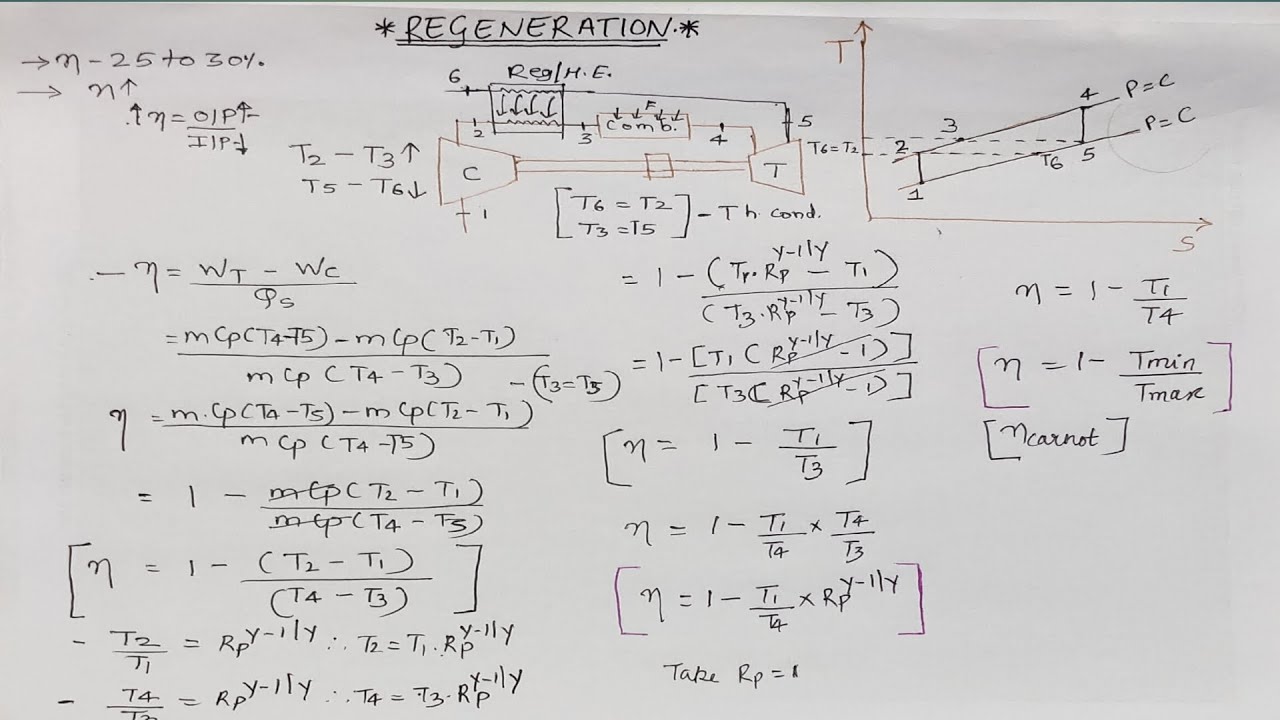 *REGENERATION.*
→ η - 25 to 30%.
→ η↑
↑η = O/P↑ / I/P↓
T2 - T3↑
T5 - T6↓
6
Reg/H.E.
2
3
F
Comb.
4
5
C
T
1
[T6 = T2
T3 = T5] - Th. cond.
T
T6=T2
2
3
4
P=C
P=C
T6
5
1
S
- η = WT - WC / Qs
= mCp(T4-T5) - mCp(T2-T1) / mCp(T4-T3) - (T3=T5)
η = m.Cp(T4-T5) - mCp(T2-T1) / mCp(T4-T5)
= 1 - mCp(T2-T1) / mCp(T4-T5)
[η = 1 - (T2-T1) / (T4-T3)]
- T2/T1 = Rp^γ-1/γ ∴ T2 = T1.Rp^γ-1/γ
- T4/T3 = Rp^γ-1/γ ∴ T4 = T3.Rp^γ-1/γ
= 1 - (T1.Rp^γ-1/γ - T1) / (T3.Rp^γ-1/γ - T3)
= 1 - [T1(Rp^γ-1/γ - 1)] / [T3(Rp^γ-1/γ - 1)]
[η = 1 - T1/T3]
η = 1 - T1/T4 × T4/T3
[η = 1 - T1/T4 × Rp^γ-1/γ]
Take Rp = 1
η = 1 - T1/T4
[η = 1 - Tmin/Tmax]
[ηcarnot]